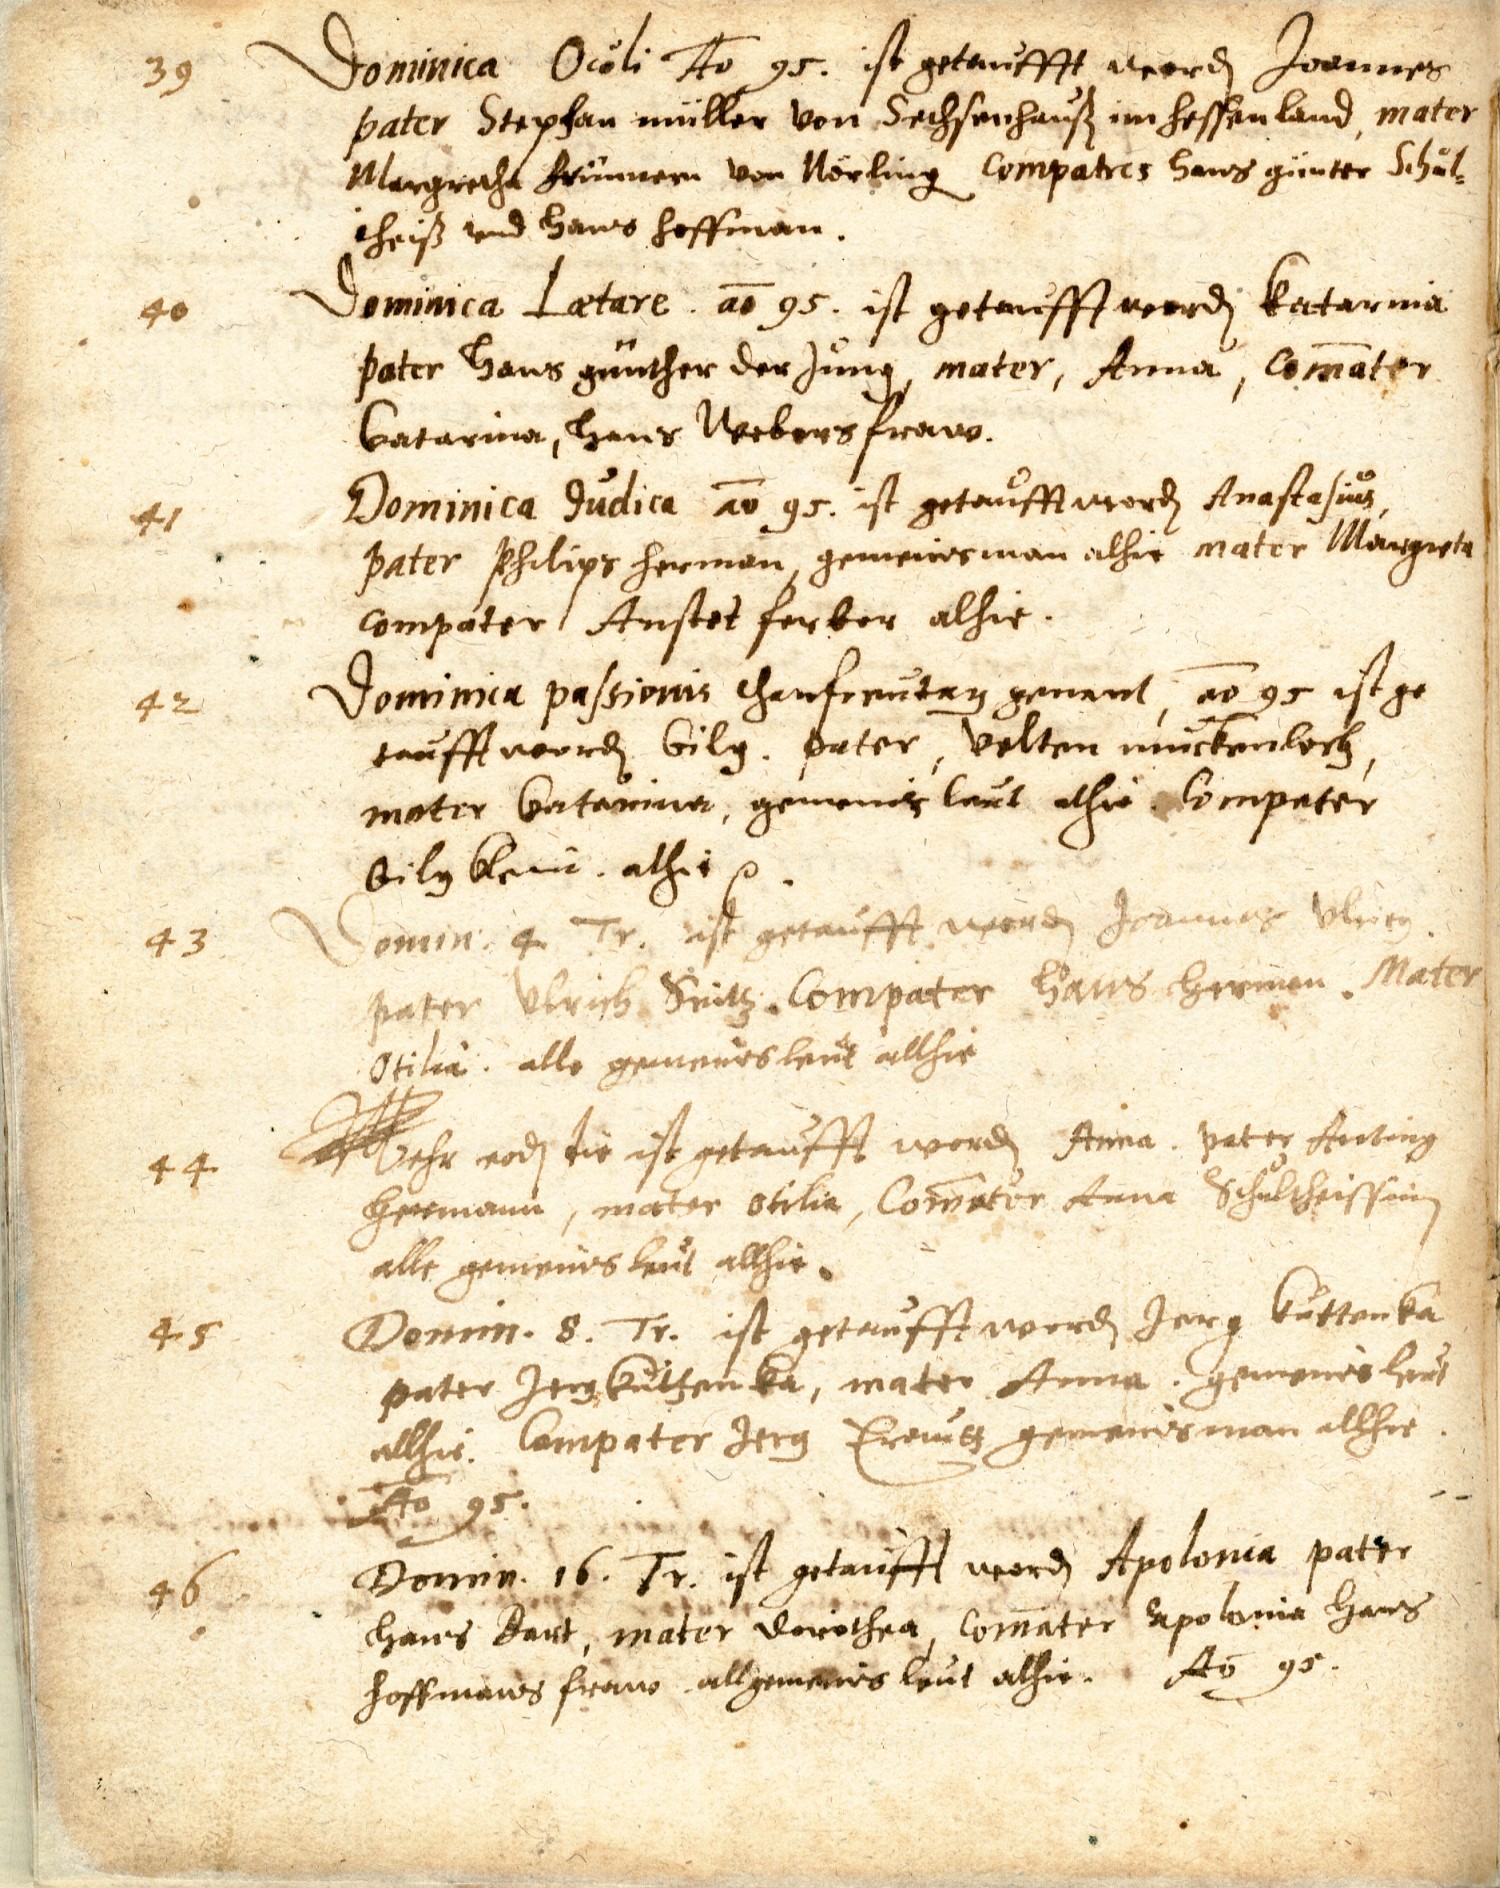 39 Dominica Oculi Ao 95. ist getaufft word Joannes
pater Stephan müller von Sechsenhauß im hessenland, mater
Margretha von Nörling Compatres hans günter Schul-
theiß und hans hoffman.
40 Dominica Lætare. ao 95. ist getaufft word Katarina
pater hans günther der Jung, mater, Anna, Comater
Catarina, hans Webers fraw.
41 Dominica Judica ao 95. ist getaufft word Anastasius,
pater Philips herman, gemeinsman alhie mater Margreta
compater Anstet ferber alhie.
42 Dominica passionis charfreutag genant, ao 95 ist ge
taufft word Gilg. pater, Velten
mater Catarina, gemeins leut alhie. Compater
Gilg klein. alhie.
43 Domin. 4. Tr. ist getaufft word Joannes Ulrich.
pater Ulrich Compater hans herman. Mater
Otilia. alle gemeins leut allhie
44 ehr eod die ist getaufft word Anna. pater
hermann, mater Otilia, Comater Anna Schultheissin
alle gemeins leut allhie.
45 Domin. 8. Tr. ist getaufft word Jerg Kuttenka
pater Jerg Kuttenka, mater Anna. gemeins leut
allhie. Compater Jerg gemeinsman allhie.
Ao 95.
46 Domin. 16. Tr. ist getaufft word Apolonia pater
hans Bart, mater Dorothea, Comater Apolonia hans
hoffmans fraw all gemeins leut alhie. Ao 95.